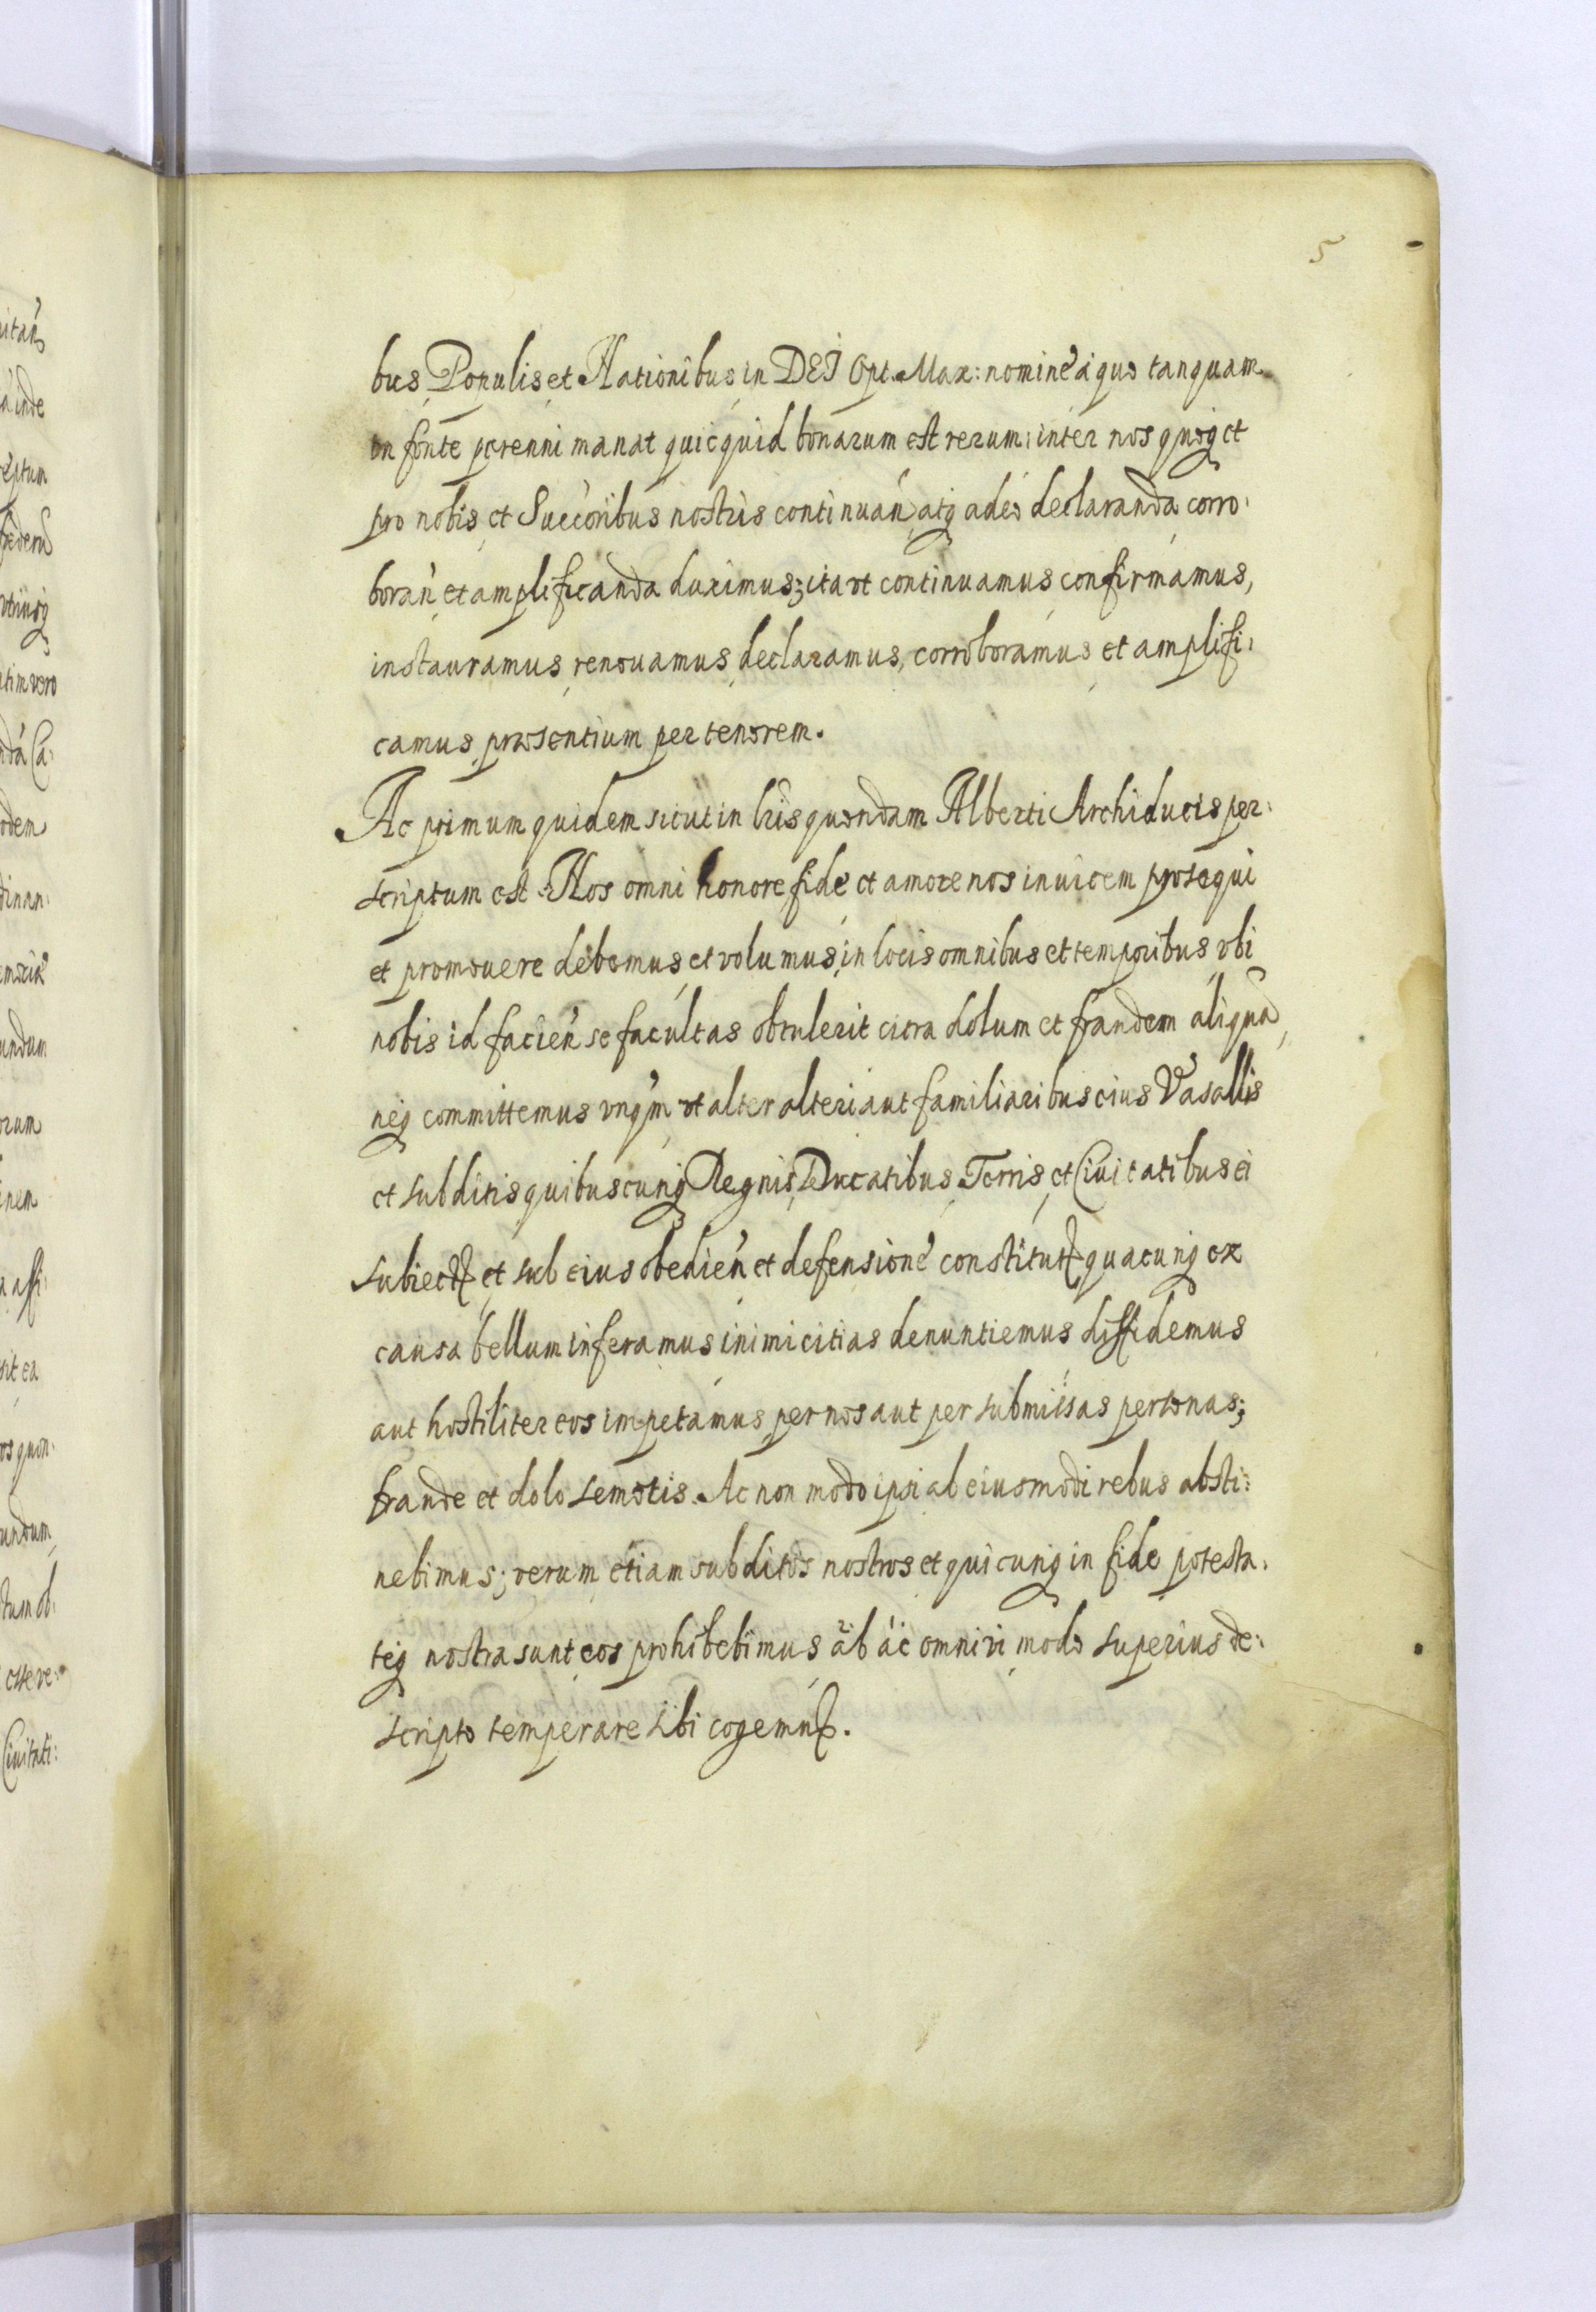 5
bus, Populis, et Nationibus, in DEI Opt. Max: nomine à quo tanquam
on fonte perenni manat quicquid bonarum est rerum: inter nos quoq et
pro nobis, et Succoribus nostris continuan, atq adeò declaranda corro:
boran, et amplificanda duximus; ita vt continuamus confirmamus,
instauramus, renouamus, declaramus, corroboramus, et amplifi:
camus, præsentium per tenorem.
Ac primum quidem sicut in lris quondam Alberti Archiducis per:
scriptum est. Nos omni honore fide et amore nos inuicem prosequi
et promouere debemus, et volumus, in locis omnibus et temporibus, vbi
nobis id facien se facultas obtulerit citra dolum et fraudem aliqua,
neq committemus vnqm vt alter alteri aut familiaribus eius Vasallis
et subditis quibuscunq Regnis, Ducatibus, Terris, et Ciuitatibus ei
subiect et sub eius obedien et defensione constitut quacunq ex
causa bellum inferamus inimicitias denuntiemus diffidemus
aut hostiliter eos impetamus, per nos aut per submissas personas;
fraude et dolo semotis. Ac non modo ipsi ab eiusmodi rebus absti:
nebimus; verum etiam subditos nostros et quicunq in fide potesta:
teq nostra sunt eos prohibebimus, ab ac omni vi modo superius de:
scripto temperare sibi cogemus.
itan
inde
eptum
federa
vtriusq
tim vero
nda Ca:
odem
dinan:
undum
orum
inem
affi:
sit ea
os quon:
undum,
tum ob:
esse ve:
Ciuitati: